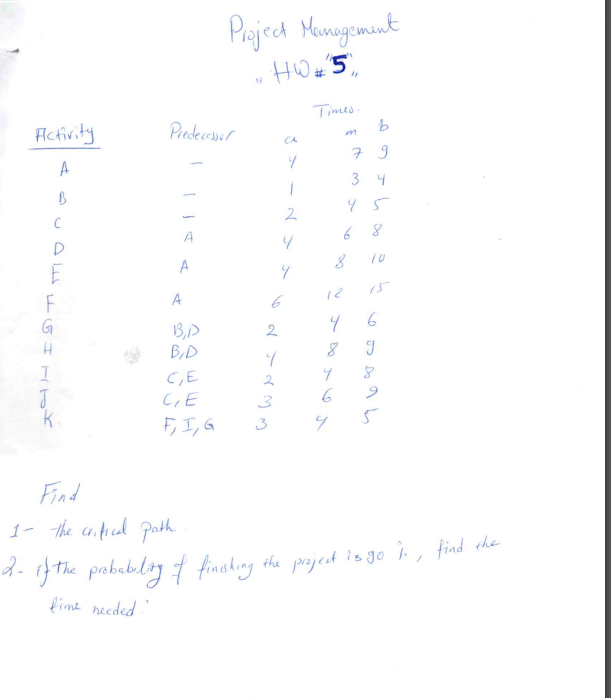 Project Management
"HW # "5""
Times.
Activity Predecessor a m b
A - 4 7 9
B - 1 3 4
C - 2 4 5
D A 4 6 8
E A 4 8 10
F A 6 12 15
G B,D 2 4 6
H B,D 4 8 9
I C,E 2 4 8
J C,E 3 6 9
K F,I,G 3 4 5
Find
1- the critical path
2- if the probability of finishing the project is 90 %, find the
time needed.